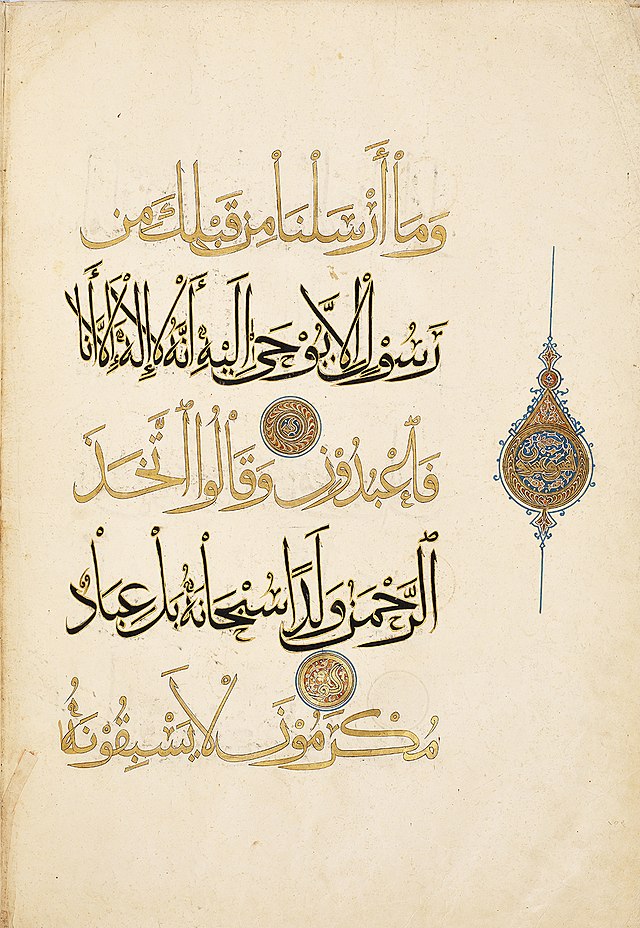 وَمَا أَرْسَلْنَا مِن قَبْلِكَ مِن
رَسُوْلٍ اِلَّا يُوْحَىٰ اِلَيْهِ أَنَّهُ لَا إِلَهَ إِلَّا أَنَا
فَاعْبُدُوْنِ وَقَالُوا اتَّخَذَ
الرَّحْمَنُ وَلَدًا سُبْحَانَهُ بَلْ عِبَادٌ
مُكْرَمُوْنَ لَا يَسْبِقُوْنَهُ